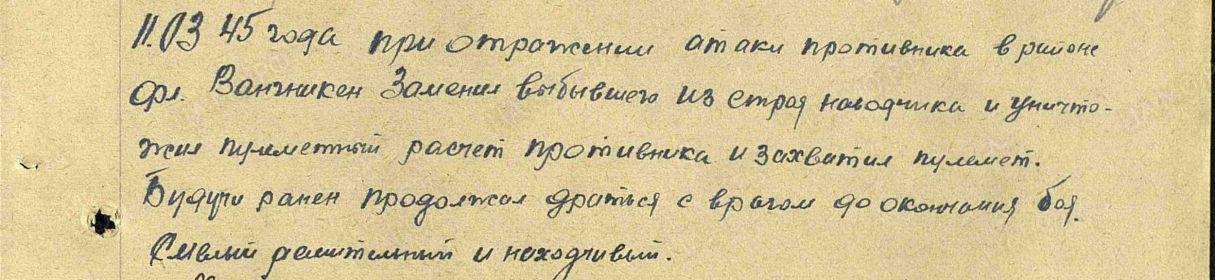 11.03 45 года при отражении атаки противника в районе
фл. Вангникен Заменил выбывшего из строя наводчика и уничто-
жил пулеметный расчет противника и захватил пулемет.
Будучи ранен продолжал драться с врагом до окончания боя.
Смелый решительный и находчивый.